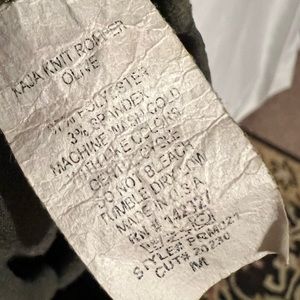 KAJA KNIT ROMPER
OLIVE
POLYESTER
3% SPANDEX
MACHINE WASH COLD
COLORS
GENTLE CYCLE
DO NOT BLEACH
TUMBLE DRY LOW
MADE IN U.S.A
RN #
STYLE#
CUT# 20230
M